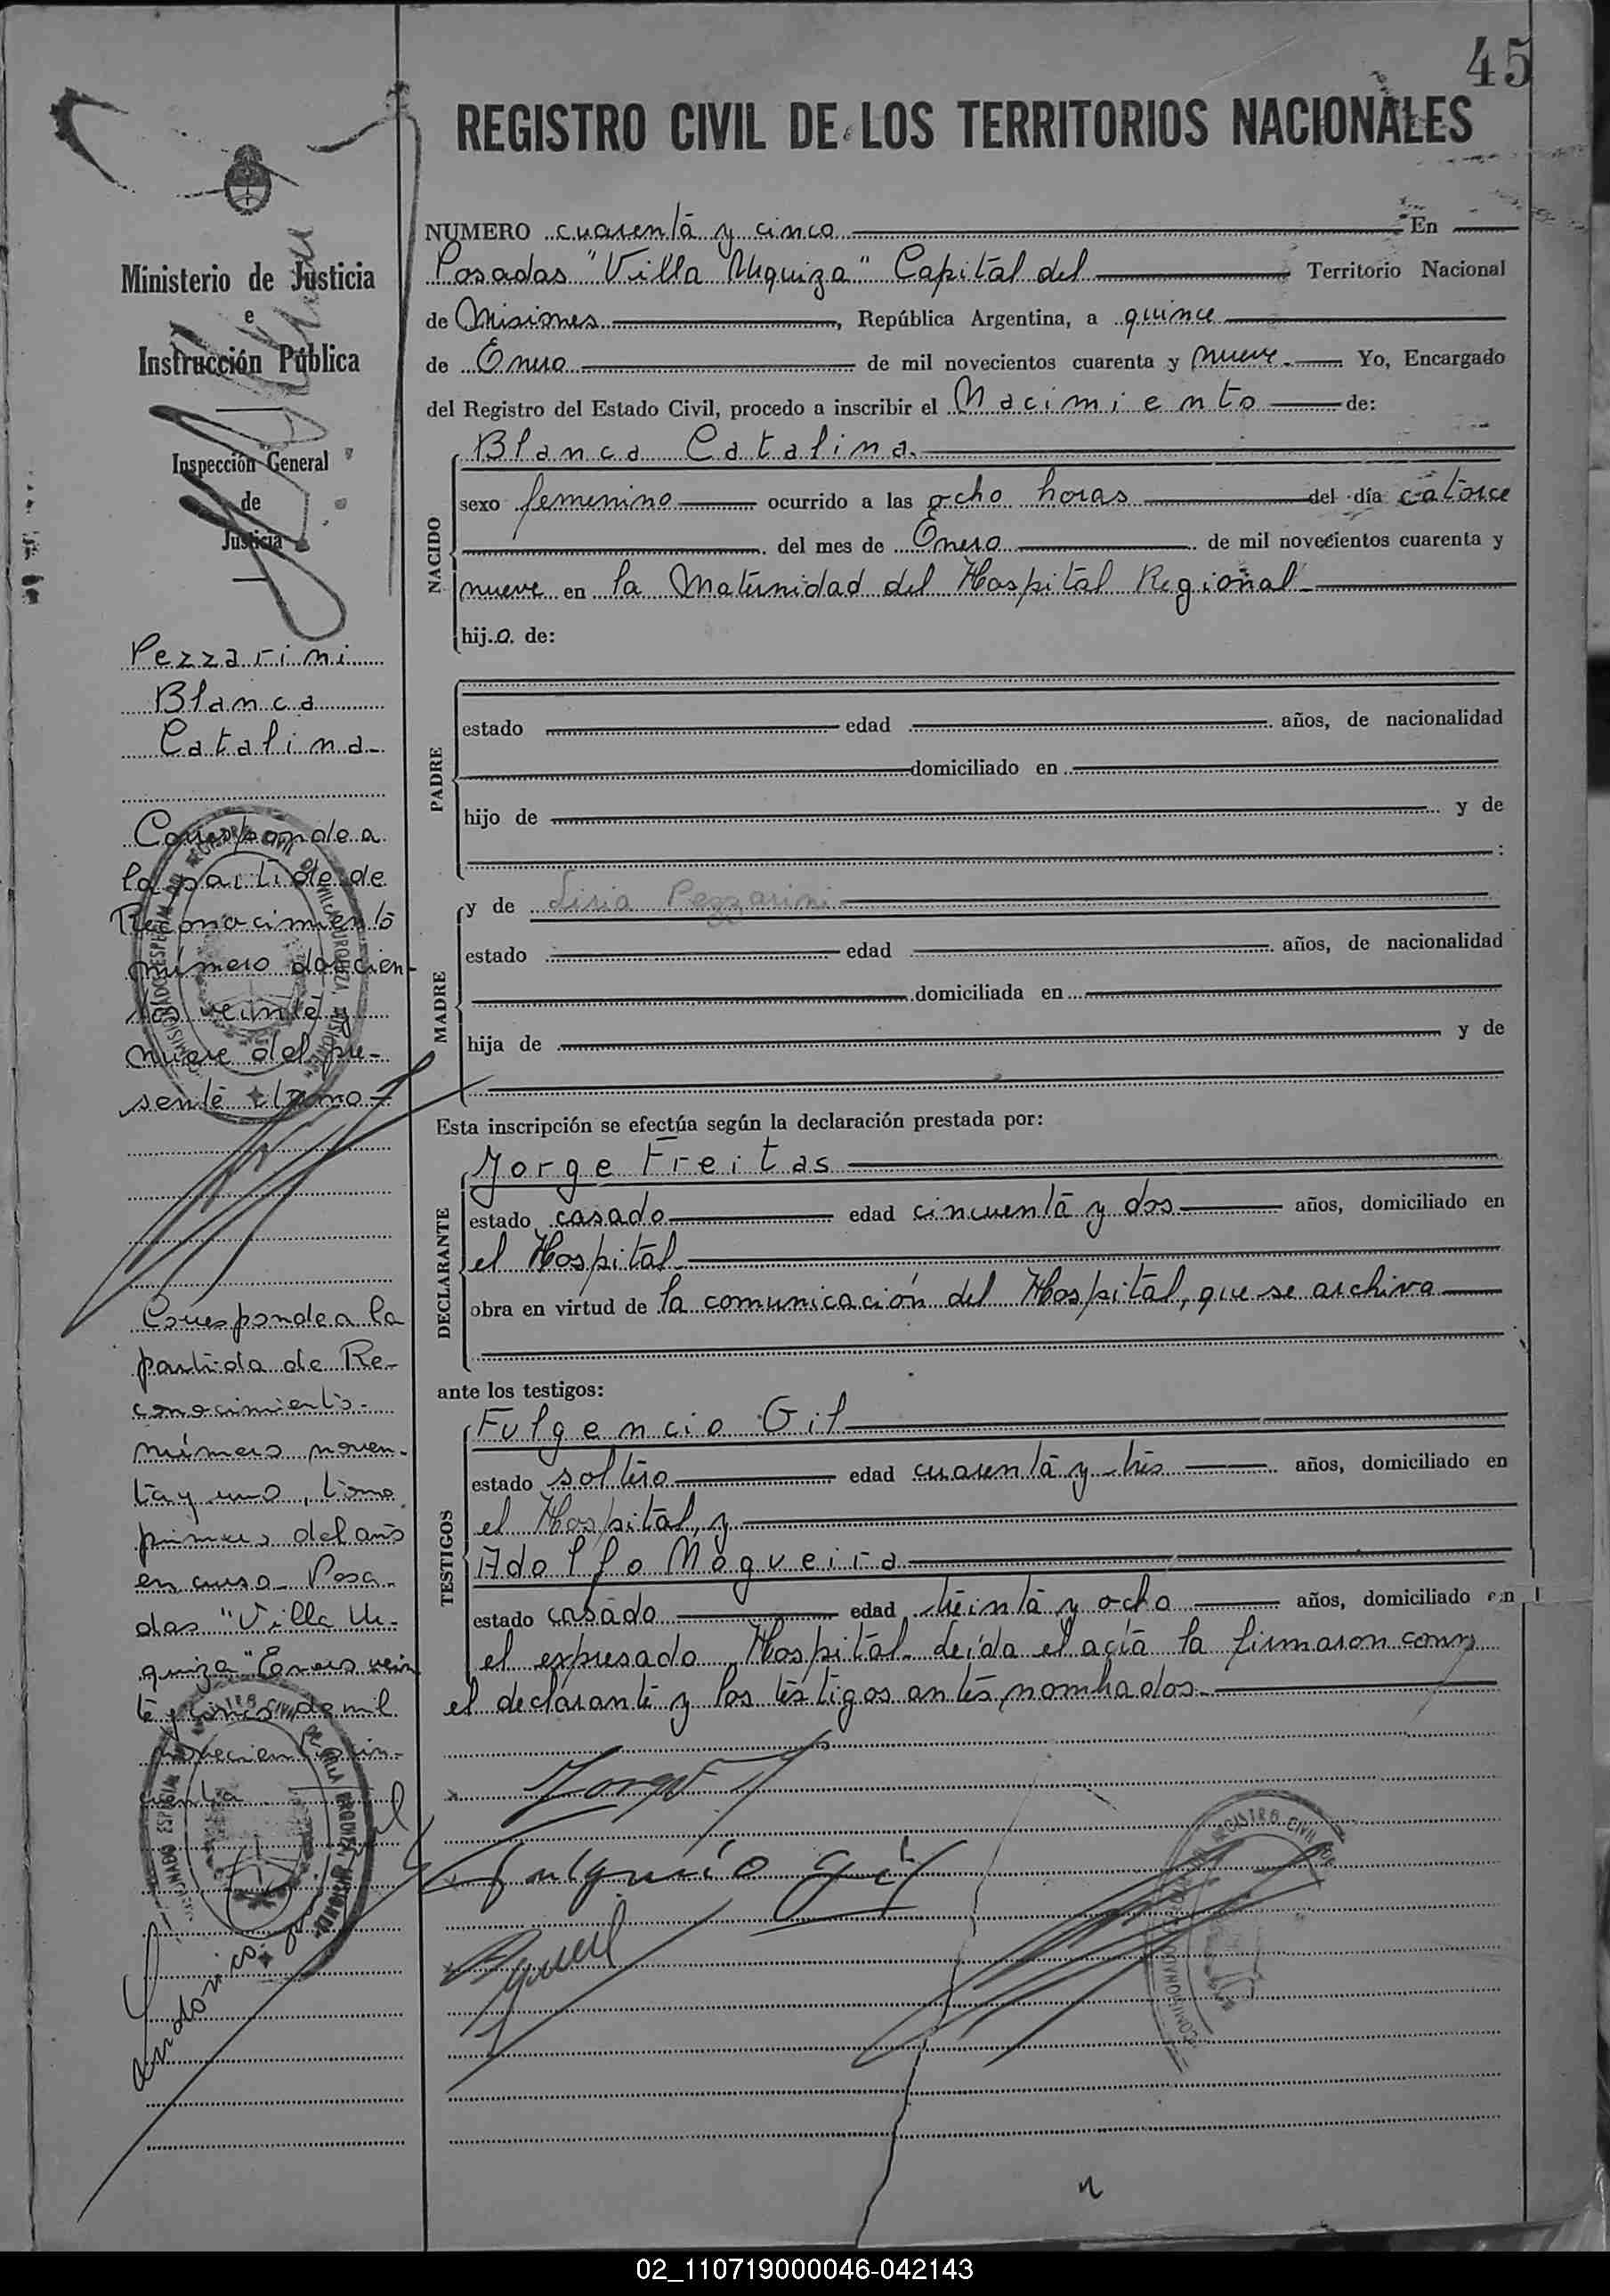 45
REGISTRO CIVIL DE LOS TERRITORIOS NACIONALES
Ministerio de Justicia
e
Instrucción Pública
Inspección General
de
Justicia
Pezzarini
Blanca
Catalina-
Corresponde a
la partida de
Reconocimiento
número doscien-
tos veinte y
nueve del pre-
sente tomo=
Corresponde a la
partida de Re-
conocimiento-
número noven-
ta y uno, tomo
primero del año
en curso- Posa-
das "Villa Ur-
quiza" Enero vein
te y cinco de mil
novecientos cin-
cuenta
NUMERO cuarenta y cinco En
Posadas "Villa Urquiza" Capital del Territorio Nacional
de Misiones, República Argentina, a quince
de Enero de mil novecientos cuarenta y nueve.- Yo, Encargado
del Registro del Estado Civil, procedo a inscribir el Nacimiento de:
NACIDO
Blanca Catalina.
sexo femenino ocurrido a las ocho horas del día catorce
del mes de Enero de mil novecientos cuarenta y
nueve en la Maternidad del Hospital Regional-
hija de:
PADRE
estado edad años, de nacionalidad
domiciliado en
hijo de y de
:
MADRE
y de Lisia Pezzarini
estado edad años, de nacionalidad
domiciliada en
hija de y de
Esta inscripción se efectúa según la declaración prestada por:
DECLARANTE
Jorge Freitas
estado casado edad cincuenta y dos años, domiciliado en
el Hospital-
obra en virtud de la comunicación del Hospital, que se archiva
ante los testigos:
TESTIGOS
Fulgencio Gil
estado soltero edad cuarenta y tres años, domiciliado en
el Hospital, y
Adolfo Nogueira
estado casado edad treinta y ocho años, domiciliado en
el expresado Hospital- Leída el acta la firmaron conm
el declarante y los testigos antes nombrados.-
Fulgencio Gil
02_110719000046-042143